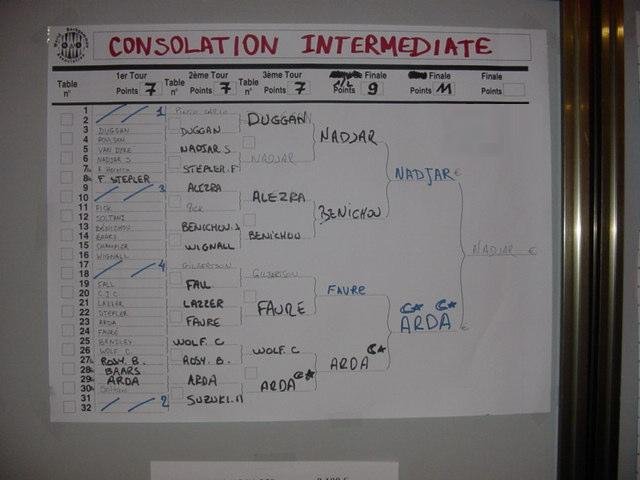 CONSOLATION INTERMEDIATE
Table n° 1er Tour Points 7
Table n° 2ème Tour Points 7
Table n° 3ème Tour Points 7
1/2 Finale Points 9
Finale Points 11
Finale Points
1 1
2
3 DUGGAN
4
5 VAN DYKE
6 NADJAR S
7
8 F. STEPLER
9 3
10
11 PICK
12 SOLTANI
13 BENICHOU
14 BAARS
15 CHAMPLER
16 WIGNALL
17 4
18
19 FALL
20 C.J.C
21 LAZZER
22 STEPLER
23 ARDA
24 FAURE
25 BENSLEY
26 WOLF C
27 ROSY. B.
28 BAARS
29 ARDA
30
31 2
32
DUGGAN
NADJAR S
STEPLER. F
ALEZRA
PICK
BENICHOU. J
WIGNALL
GILBERTSON
FALL
LAZZER
FAURE
WOLF. C
ROSY. B.
ARDA
SUZUKI. M
DUGGAN
NADJAR
ALEZRA
BENICHOU
GILBERTSON
FAURE
WOLF. C
ARDA
NADJAR
BENICHOU
FAURE
ARDA
NADJAR €
ARDA €
NADJAR €